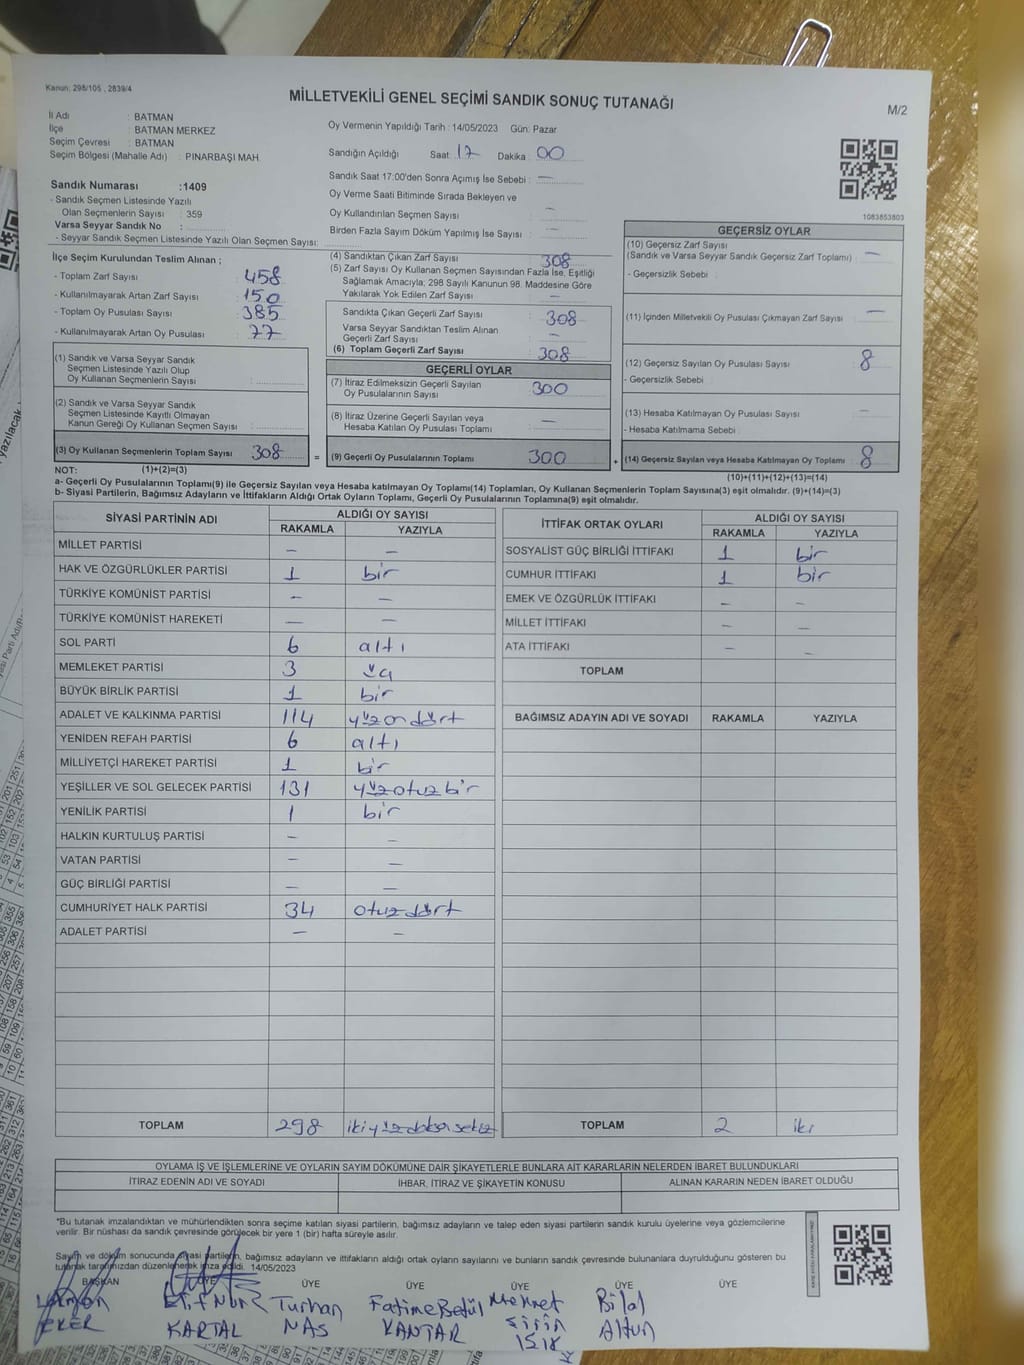 Kanun: 298/105 , 2839/4
MİLLETVEKİLİ GENEL SEÇİMİ SANDIK SONUÇ TUTANAĞI
M/2
İl Adı : BATMAN
İlçe : BATMAN MERKEZ
Seçim Çevresi : BATMAN
Seçim Bölgesi (Mahalle Adı) : PINARBAŞI MAH.
Oy Vermenin Yapıldığı Tarih : 14/05/2023 Gün: Pazar
Sandığın Açıldığı Saat: 17 Dakika : 00
Sandık Saat 17:00'den Sonra Açımış İse Sebebi : —
Oy Verme Saati Bitiminde Sırada Bekleyen ve
Oy Kullandırılan Seçmen Sayısı —
Birden Fazla Sayım Döküm Yapılmış İse Sayısı —
1083853803
Sandık Numarası :1409
- Sandık Seçmen Listesinde Yazılı
Olan Seçmenlerin Sayısı : 359
Varsa Seyyar Sandık No :
- Seyyar Sandık Seçmen Listesinde Yazılı Olan Seçmen Sayısı:
İlçe Seçim Kurulundan Teslim Alınan ;
- Toplam Zarf Sayısı : 458
- Kullanılmayarak Artan Zarf Sayısı : 150
- Toplam Oy Pusulası Sayısı : 385
- Kullanılmayarak Artan Oy Pusulası : 77
(1) Sandık ve Varsa Seyyar Sandık
Seçmen Listesinde Yazılı Olup
Oy Kullanan Seçmenlerin Sayısı :
(2) Sandık ve Varsa Seyyar Sandık
Seçmen Listesinde Kayıtlı Olmayan
Kanun Gereği Oy Kullanan Seçmen Sayısı :
(3) Oy Kullanan Seçmenlerin Toplam Sayısı 308 =
(4) Sandıktan Çıkan Zarf Sayısı 308
(5) Zarf Sayısı Oy Kullanan Seçmen Sayısından Fazla İse, Eşitliği
Sağlamak Amacıyla; 298 Sayılı Kanunun 98. Maddesine Göre
Yakılarak Yok Edilen Zarf Sayısı —
Sandıkta Çıkan Geçerli Zarf Sayısı 308
Varsa Seyyar Sandıktan Teslim Alınan
Geçerli Zarf Sayısı —
(6) Toplam Geçerli Zarf Sayısı 308
GEÇERLİ OYLAR
(7) İtiraz Edilmeksizin Geçerli Sayılan
Oy Pusulalarının Sayısı 300
(8) İtiraz Üzerine Geçerli Sayılan veya
Hesaba Katılan Oy Pusulası Toplamı —
(9) Geçerli Oy Pusulalarının Toplamı 300 +
GEÇERSİZ OYLAR
(10) Geçersiz Zarf Sayısı
(Sandık ve Varsa Seyyar Sandık Geçersiz Zarf Toplamı) : —
- Geçersizlik Sebebi :
(11) İçinden Milletvekili Oy Pusulası Çıkmayan Zarf Sayısı : —
(12) Geçersiz Sayılan Oy Pusulası Sayısı : 8
- Geçersizlik Sebebi :
(13) Hesaba Katılmayan Oy Pusulası Sayısı : —
- Hesaba Katılmama Sebebi :
(14) Geçersiz Sayılan veya Hesaba Katılmayan Oy Toplamı : 8
NOT: (1)+(2)=(3) (10)+(11)+(12)+(13)=(14)
a- Geçerli Oy Pusulalarının Toplamı(9) ile Geçersiz Sayılan veya Hesaba katılmayan Oy Toplamı(14) Toplamları, Oy Kullanan Seçmenlerin Toplam Sayısına(3) eşit olmalıdır. (9)+(14)=(3)
b- Siyasi Partilerin, Bağımsız Adayların ve İttifakların Aldığı Ortak Oyların Toplamı, Geçerli Oy Pusulalarının Toplamına(9) eşit olmalıdır.
SİYASİ PARTİNİN ADI ALDIĞI OY SAYISI
RAKAMLA YAZIYLA
MİLLET PARTİSİ — —
HAK VE ÖZGÜRLÜKLER PARTİSİ 1 bir
TÜRKİYE KOMÜNİST PARTİSİ — —
TÜRKİYE KOMÜNİST HAREKETİ — —
SOL PARTİ 6 altı
MEMLEKET PARTİSİ 3 üç
BÜYÜK BİRLİK PARTİSİ 1 bir
ADALET VE KALKINMA PARTİSİ 114 yüzondört
YENİDEN REFAH PARTİSİ 6 altı
MİLLİYETÇİ HAREKET PARTİSİ 1 bir
YEŞİLLER VE SOL GELECEK PARTİSİ 131 yüzotuzbir
YENİLİK PARTİSİ 1 bir
HALKIN KURTULUŞ PARTİSİ — —
VATAN PARTİSİ — —
GÜÇ BİRLİĞİ PARTİSİ — —
CUMHURİYET HALK PARTİSİ 34 otuzdört
ADALET PARTİSİ — —
TOPLAM 298 ikiyüzdoksansekiz
İTTİFAK ORTAK OYLARI ALDIĞI OY SAYISI
RAKAMLA YAZIYLA
SOSYALİST GÜÇ BİRLİĞİ İTTİFAKI 1 bir
CUMHUR İTTİFAKI 1 bir
EMEK VE ÖZGÜRLÜK İTTİFAKI — —
MİLLET İTTİFAKI — —
ATA İTTİFAKI — —
TOPLAM
BAĞIMSIZ ADAYIN ADI VE SOYADI RAKAMLA YAZIYLA
TOPLAM 2 iki
OYLAMA İŞ VE İŞLEMLERİNE VE OYLARIN SAYIM DÖKÜMÜNE DAİR ŞİKAYETLERLE BUNLARA AİT KARARLARIN NELERDEN İBARET BULUNDUKLARI
İTİRAZ EDENİN ADI VE SOYADI İHBAR, İTİRAZ VE ŞİKAYETİN KONUSU ALINAN KARARIN NEDEN İBARET OLDUĞU
*Bu tutanak imzalandıktan ve mühürlendikten sonra seçime katılan siyasi partilerin, bağımsız adayların ve talep eden siyasi partilerin sandık kurulu üyelerine veya gözlemcilerine
verilir. Bir nüshası da sandık çevresinde görülecek bir yere 1 (bir) hafta süreyle asılır.
Sayım ve döküm sonucunda siyasi partilerin, bağımsız adayların ve ittifakların aldığı ortak oyların sayılarını ve bunların sandık çevresinde bulunanlara duyrulduğunu gösteren bu
tutanak tarafımızdan düzenlenerek imza edildi. 14/05/2023
BAŞKAN ÜYE ÜYE ÜYE ÜYE ÜYE ÜYE
Elif Nur Turhan Fatime Betül Mehmet Bilal
KARTAL NAS KANTAR Şirin Altun
IŞIK